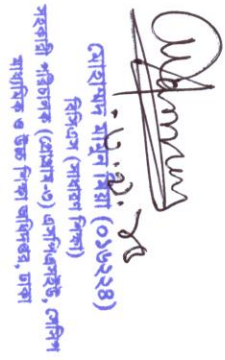 মোহাম্মদ মামুন মিয়া (০১৮২২৪)
বিসিএস (সাধারণ শিক্ষা)
সহকারি পরিচালক (প্রোগ্রাম-৩) এসপিএসইউ, সেসিপ
মাধ্যমিক ও উচ্চ শিক্ষা অধিদপ্তর, ঢাকা